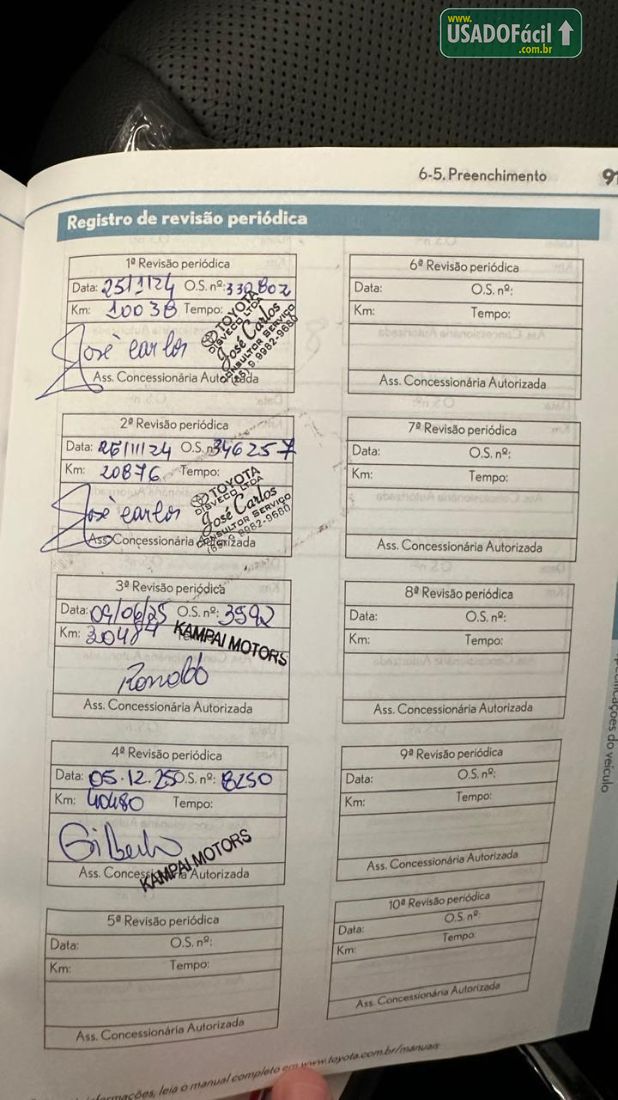 www.
USADOFácil
.com.br
6-5. Preenchimento
91
Registro de revisão periódica
1ª Revisão periódica
Data: 25/1/24 O.S. nº: 339802
Km: 10038 Tempo:
José Carlos
TOYOTA
DISVECO LTDA
José Carlos
CONSULTOR SERVIÇO
(65) 9 9982-9680
Ass. Concessionária Autorizada
2ª Revisão periódica
Data: 26/11/24 O.S. nº: 346257
Km: 20876 Tempo:
José Carlos
TOYOTA
DISVECO LTDA
José Carlos
CONSULTOR SERVIÇO
(65) 9 9982-9680
Ass. Concessionária Autorizada
3ª Revisão periódica
Data: 04/06/25 O.S. nº: 3592
Km: 30484
KAMPAI MOTORS
Ronaldo
Ass. Concessionária Autorizada
4ª Revisão periódica
Data: 05.12.25 O.S. nº: 8250
Km: 40480 Tempo:
Gilberto
KAMPAI MOTORS
Ass. Concessionária Autorizada
5ª Revisão periódica
Data: O.S. nº:
Km: Tempo:
Ass. Concessionária Autorizada
6ª Revisão periódica
Data: O.S. nº:
Km: Tempo:
Ass. Concessionária Autorizada
7ª Revisão periódica
Data: O.S. nº:
Km: Tempo:
Ass. Concessionária Autorizada
8ª Revisão periódica
Data: O.S. nº:
Km: Tempo:
Ass. Concessionária Autorizada
9ª Revisão periódica
Data: O.S. nº:
Km: Tempo:
Ass. Concessionária Autorizada
10ª Revisão periódica
Data: O.S. nº:
Km: Tempo:
Ass. Concessionária Autorizada
informações, leia o manual completo em www.toyota.com.br/manuais
do veículo